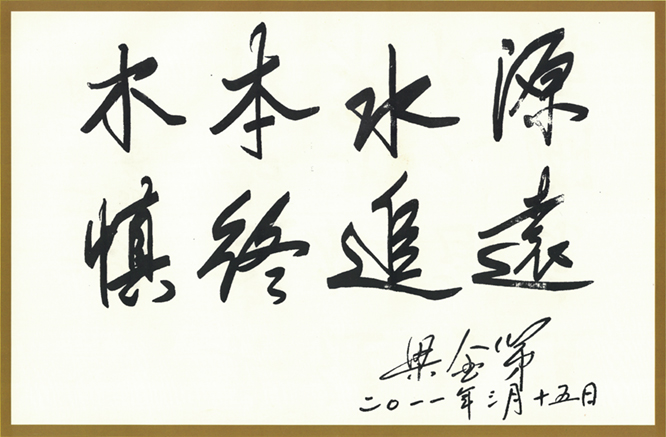 木本水源
慎終追遠
梁金第
二〇一一年三月十五日